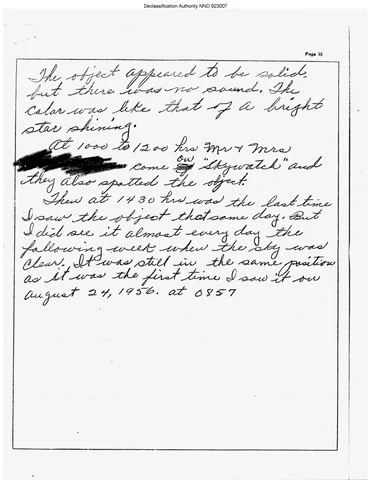 Declassification Authority NND 923007
Page 10
The object appeared to be solid,
but there was no sound. The
color was like that of a bright
star shining.
At 1000 to 1200 hrs Mr & Mrs
come on "Skywatch" and
they also spotted the object.
Then at 1430 hrs was the last time
I saw the object that same day. But
I did see it almost every day the
following week when the sky was
clear. It was still in the same position
as it was the first time I saw it on
August 24, 1956. at 0857